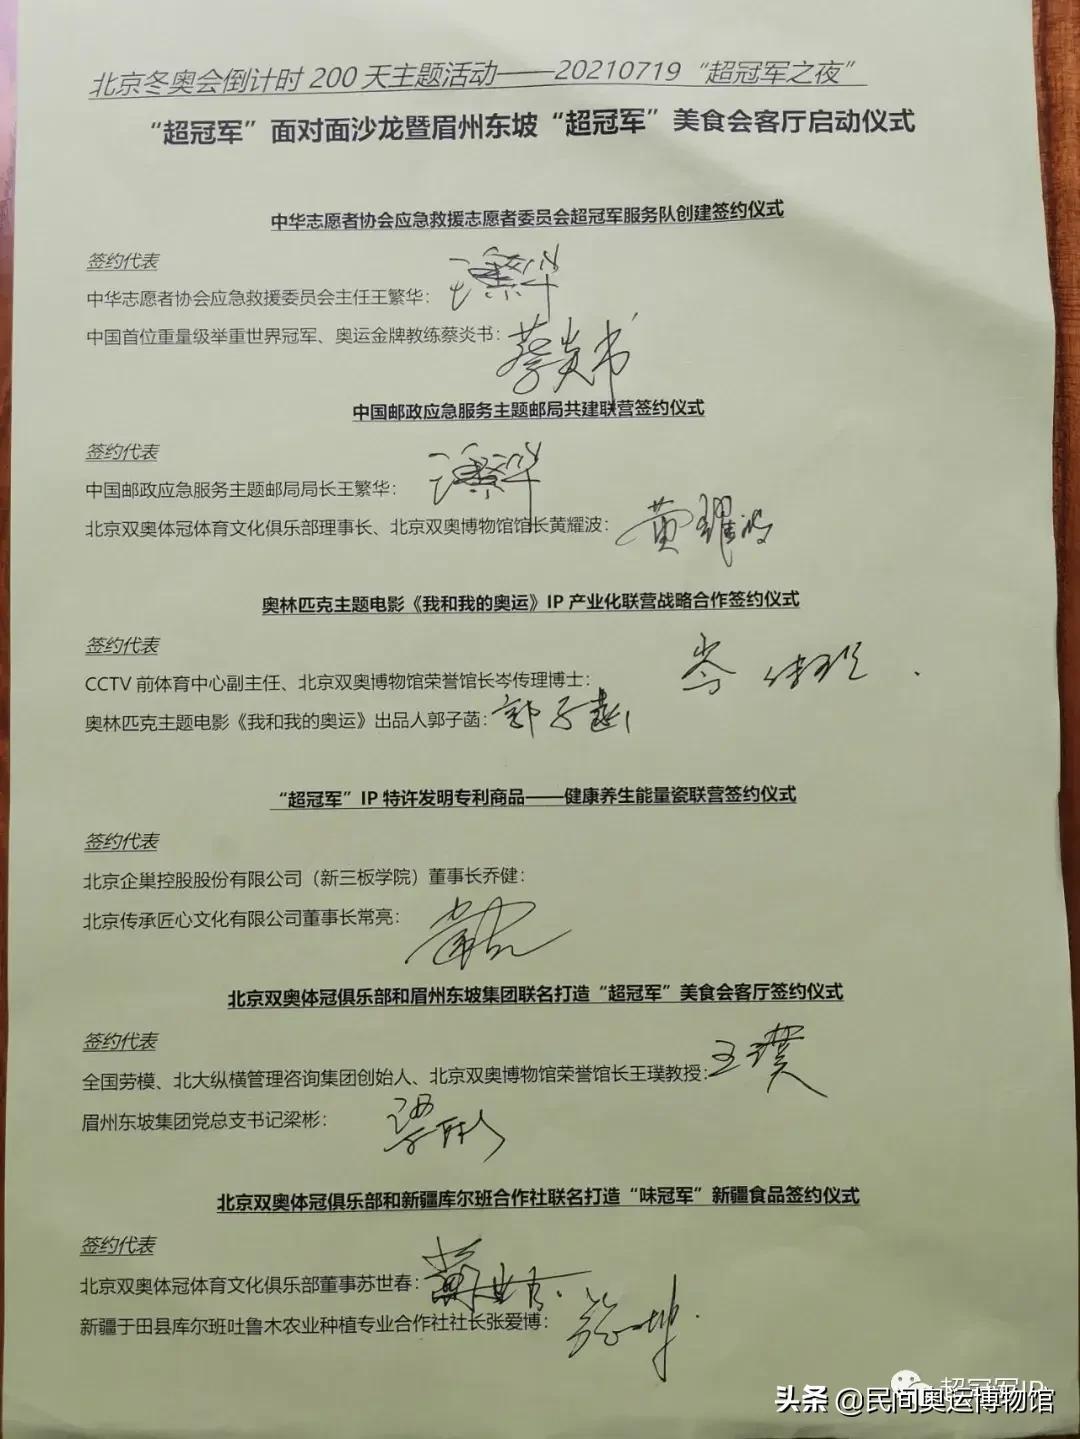 北京冬奥会倒计时 200 天主题活动——20210719“超冠军之夜”
“超冠军”面对面沙龙暨眉州东坡“超冠军”美食会客厅启动仪式
中华志愿者协会应急救援志愿者委员会超冠军服务队创建签约仪式
签约代表
中华志愿者协会应急救援委员会主任王繁华：王繁华
中国首位重量级举重世界冠军、奥运金牌教练蔡炎书：蔡炎书
中国邮政应急服务主题邮局共建联营签约仪式
签约代表
中国邮政应急服务主题邮局局长王繁华：王繁华
北京双奥体冠体育文化俱乐部理事长、北京双奥博物馆馆长黄耀波：黄耀波
奥林匹克主题电影《我和我的奥运》IP 产业化联营战略合作签约仪式
签约代表
CCTV 前体育中心副主任、北京双奥博物馆荣誉馆长岑传理博士：岑传理
奥林匹克主题电影《我和我的奥运》出品人郭子菡：郭子菡
“超冠军”IP 特许发明专利商品——健康养生能量瓷联营签约仪式
签约代表
北京企巢控股股份有限公司（新三板学院）董事长乔健：
北京传承匠心文化有限公司董事长常亮：常亮
北京双奥体冠俱乐部和眉州东坡集团联名打造“超冠军”美食会客厅签约仪式
签约代表
全国劳模、北大纵横管理咨询集团创始人、北京双奥博物馆荣誉馆长王璞教授：王璞
眉州东坡集团党总支书记梁彬：梁彬
北京双奥体冠俱乐部和新疆库尔班合作社联名打造“味冠军”新疆食品签约仪式
签约代表
北京双奥体冠体育文化俱乐部董事苏世春：
新疆于田县库尔班吐鲁木农业种植专业合作社社长张爱博：
超冠军IP
头条 @民间奥运博物馆